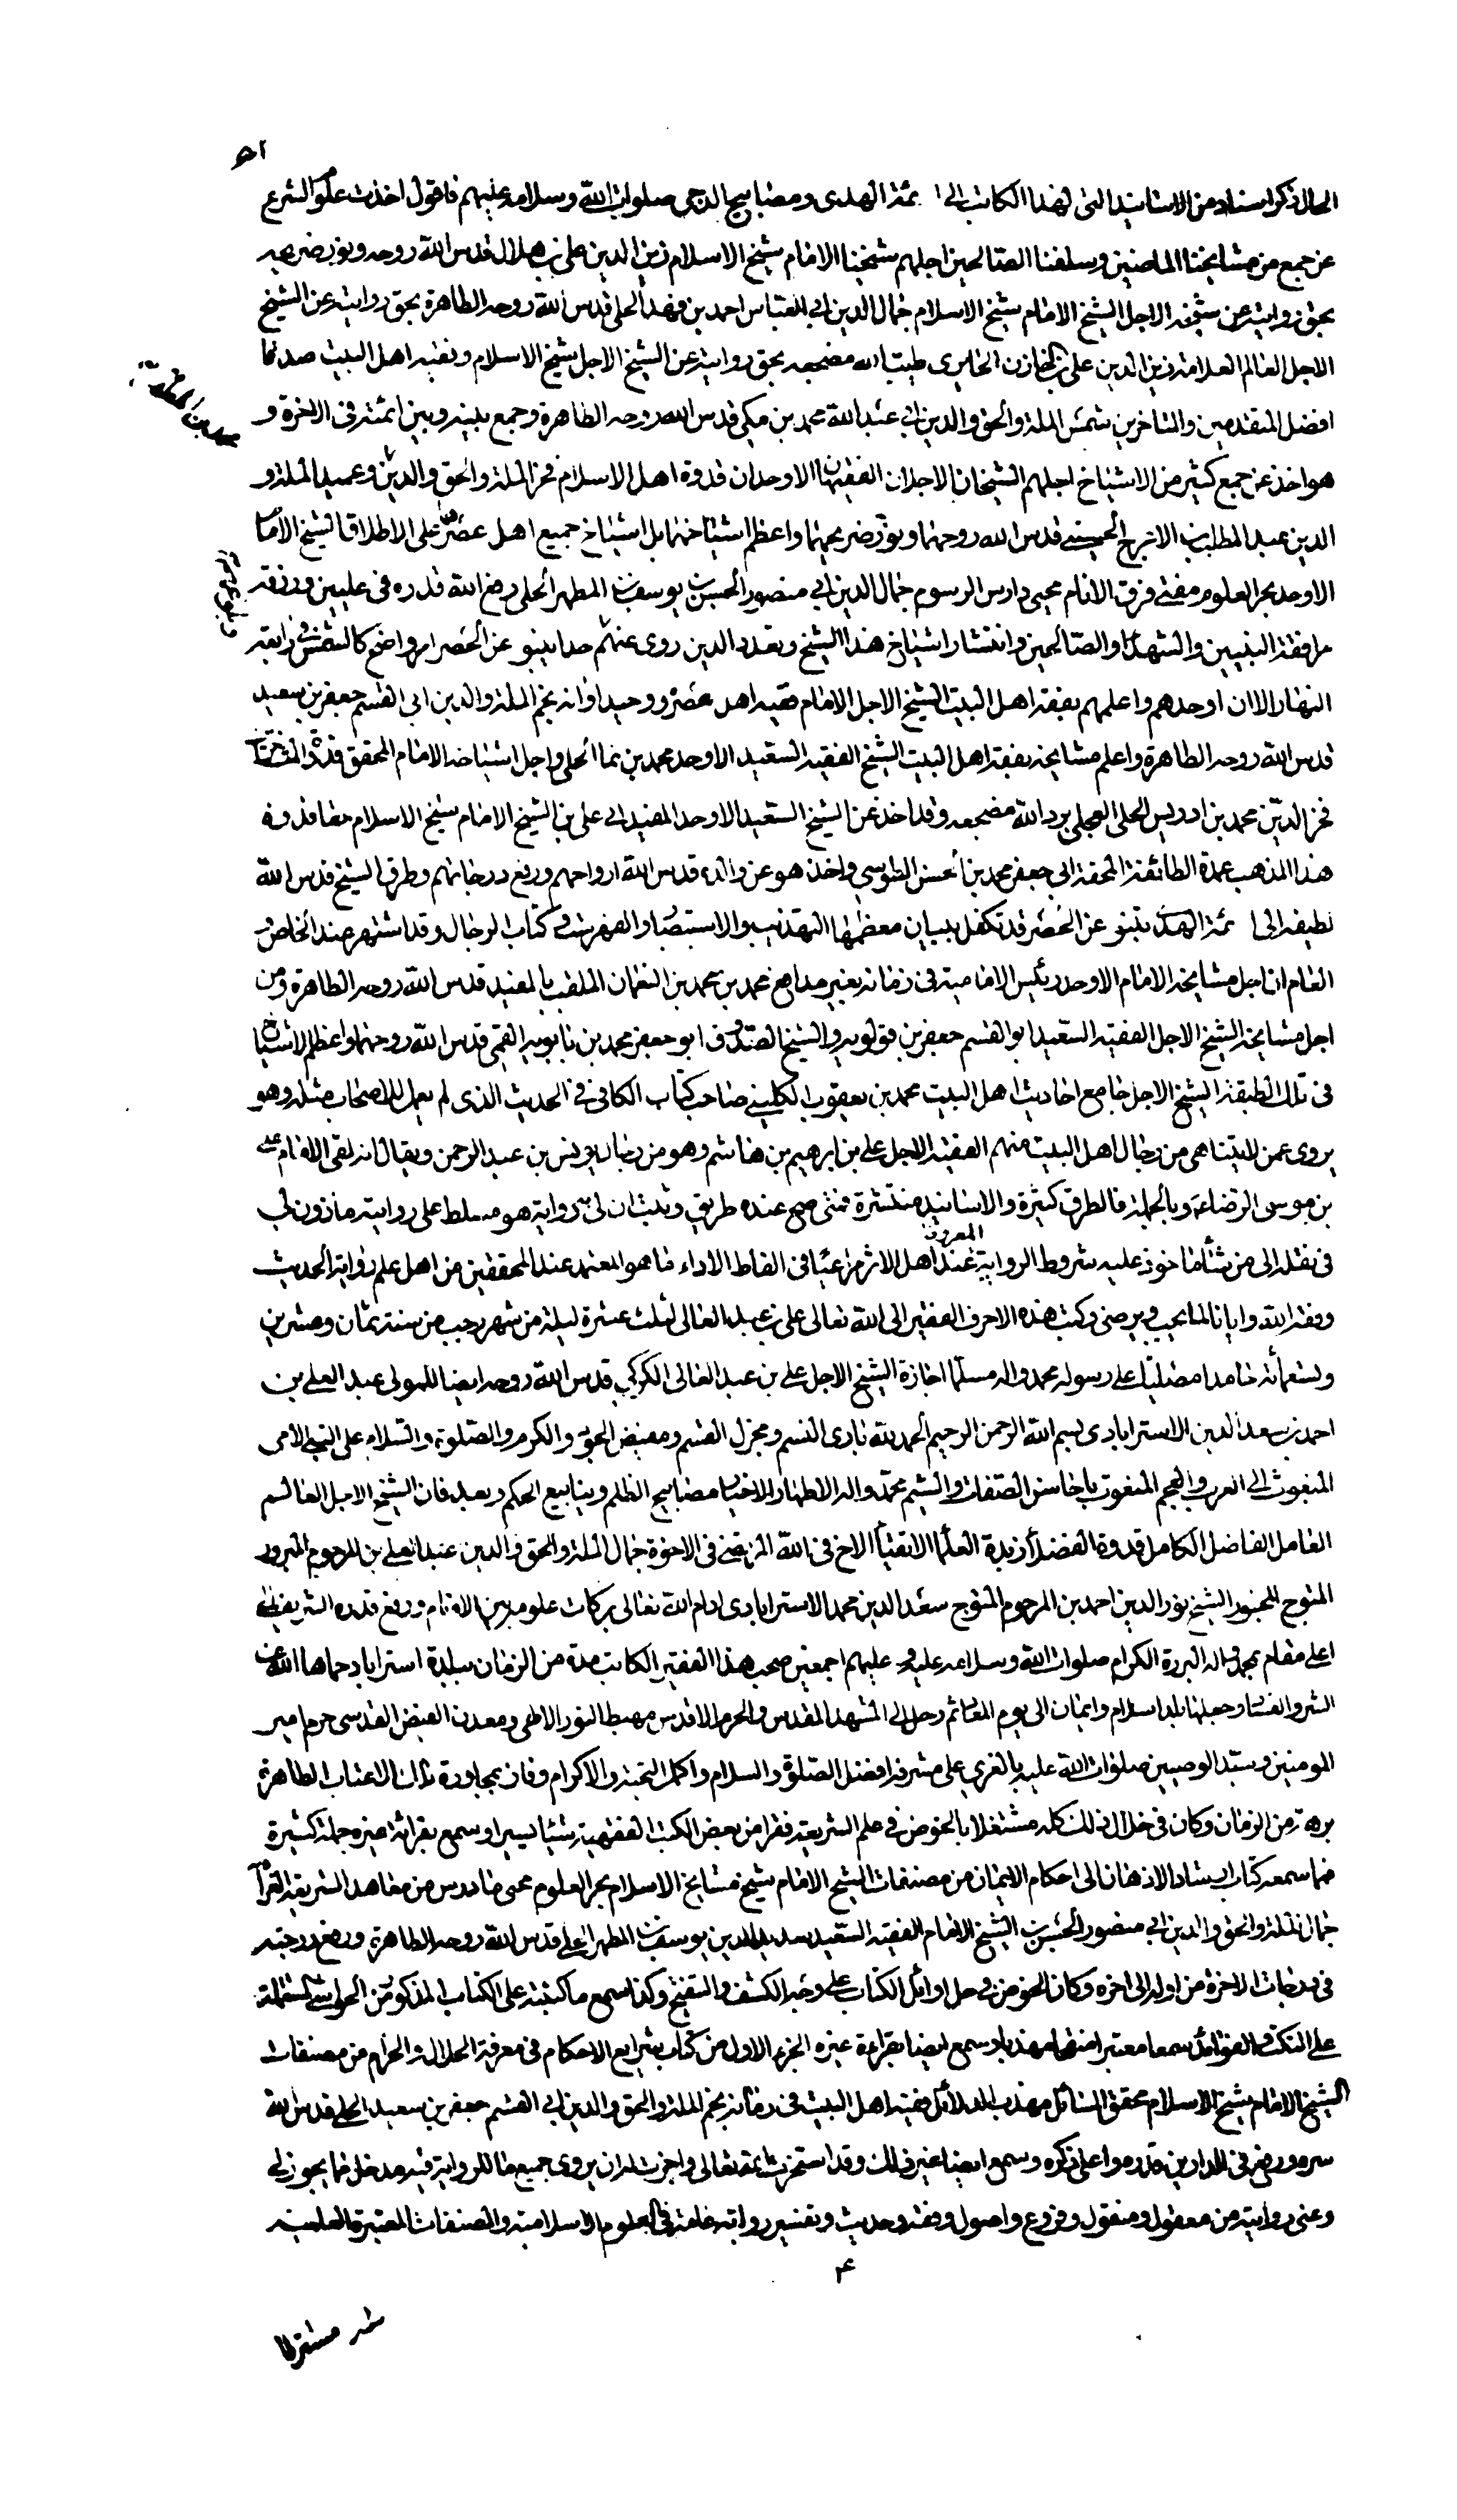 الحال ذكر اسناد من الاسانيد التى لهذا الكاتب الى ائمة الهدى ومصابيح الدجى صلوات الله وسلامه عليهم فاقول اخذت علوم الشرع
عن جمع من مشايخنا الماضين وسلفنا الصالحين اجلهم شيخنا الامام شيخ الاسلام زين الدين على بن هلال قدس الله روحه ونور ضريحه
بحق روايته عن شيخه الاجل الشيخ الامام شيخ الاسلام جمال الدين ابى العباس احمد بن فهد الحلى قدس الله روحه الطاهرة بحق روايته عن الشيخ
الاجل العالم العلامة زين الدين على بن الخازن الحايرى طيب الله مضجعه بحق روايته عن الشيخ الاجل شيخ الاسلام وفقيه اهل البيت صدقا
افضل المتقدمين والمتاخرين شمس الملة والحق والدين ابى عبد الله محمد بن مكى قدس الله روحه الطاهرة وجمع بينه وبين ائمته فى الاخرة و
هو اخذ عن جمع كثير من الاشياخ اجلهم الشيخان الاجلان الفقيهان الاوحدان قدوة اهل الاسلام فخر الملة والحق والدين وعميد الملة و
الدين عبد المطلب بن الاعرج الحسينى قدس الله روحهما ونور ضريحهما واعظم اشياخهما بل اشياخ جميع اهل عصره على الاطلاق الشيخ الامام
الاوحد بحر العلوم مفتى فرق الانام محيى دارس الرسوم جمال الدين ابى منصور الحسن بن يوسف بن المطهر الحلى رفع الله قدره فى عليين ورزقه
مرافقة النبيين والشهداء والصالحين وانتشار اشياخ هذا الشيخ وتعدد الذين روى عنهم حدا ينبو عن الحصر امر واضح كالشمس فى رابعة
النهار الا ان اوحدهم واعلمهم بفقه اهل البيت الشيخ الاجل الامام فقيه اهل عصره ووحيد اوانه نجم الملة والدين ابى القسم جعفر بن سعيد
قدس الله روحه الطاهرة واعلم مشايخه بفقه اهل البيت الشيخ الفقيه السعيد الاوحد محمد بن نما الحلى واجل اشياخه الامام المحقق قدوة المتاخرين
فخر الدين محمد بن ادريس الحلى العجلى برد الله مضجعه وقد اخذ عن الشيخ السعيد الاوحد المفيد ابى على بن الشيخ الامام شيخ الاسلام
هذا المذهب عمدة الطائفة المحقة ابى جعفر محمد بن الحسن الطوسى واخذ هو عن والده قدس الله ارواحهم ورفع درجاتهم وطرق الشيخ قدس الله
لطيفه الى ائمة الهدى تنبو عن الحصر قد تكفل ببيان معظمها التهذيب والاستبصار والفهرست وكتاب الرجال وقد اشتهر عند الخاص و
العام ان اجل مشايخه الامام الاوحد رئيس الامامية فى زمانه بغير مدافع محمد بن محمد بن النعمان الملقب بالمفيد قدس الله روحه الطاهرة ومن
اجل مشايخه الشيخ الاجل الفقيه السعيد ابو القسم جعفر بن قولويه والشيخ الصدوق ابو جعفر محمد بن بابويه القمى قدس الله روحهما واعظم الاشياخ
فى تلك الطبقة الشيخ الاجل جامع احاديث اهل البيت محمد بن يعقوب الكلينى صاحب كتاب الكافى فى الحديث الذى لم يعمل للاصحاب مثله وهو
يروى عمن لا يتناهى من رجال اهل البيت منهم الفقيه الاجل على بن ابرهيم بن هاشم وهو من رجال يونس بن عبد الرحمن ويقال انه لقى الامام على
بن موسى الرضا ع وبالجملة فالطرق كثيرة والاسانيد منتشرة فمتى صح عنده طريق وثبت ان لى به رواية هو مسلط على روايته ماذون لى
فى نقله الى من شاء ماخوذ عليه شروط الرواية المعروفة عند اهل الاثر مراعيا فى الفاظ الاداء ما هو المعتمد عند المحققين من اهل علم رواية الحديث
وفقه الله وايانا لما يحب ويرضى وكتب هذه الاحرف الفقير الى الله تعالى على بن عبد العالى لثلث عشرة ليلة من شهر رجب من سنة ثمان وعشرين
وتسعمائة حامدا مصليا على رسوله محمد واله مسلما اجازة الشيخ الاجل على بن عبد العالى الكركى قدس الله روحه ايضا للمولى عبد العلى بن
احمد بن سعد الدين الاسترابادى بسم الله الرحمن الرحيم الحمد لله بارى النسم ومجزل القسم ومفيض الجود والكرم والصلوة والسلام على النبى الامى
المبعوث الى العرب والعجم المنعوت باحاسن الصفات والشيم محمد واله الاطهار الاخيار مصابيح الظلم وينابيع الحكم وبعد فان الشيخ الاجل العالم
العامل الفاضل الكامل قدوة الفضلاء زبدة العلماء الاتقياء الاخ فى الله المرتضى فى الاخوة جمال الملة والحق والدين عبد العلى بن المرحوم المبرور
المتوج المحبور الشيخ نور الدين احمد بن المرحوم المتوج سعد الدين محمد الاسترابادى ادام الله تعالى بركات علومه بين الانام ورفع قدره الشريف الى
اعلى مقام بمحمد واله البررة الكرام صلوات الله وسلامه عليه وعليهم اجمعين صحب هذا الفقير الكاتب مدة من الزمان ببلدة استراباد حماها الله عن
الشر والفساد وجعلها بلد اسلام وايمان الى يوم المعاد ثم رحل الى المشهد المقدس والحرم الاقدس مهبط النور الالهى ومعدن الفيض القدسى حرم امير
المومنين وسيد الوصيين صلوات الله عليه بالغرى على مشرفه افضل الصلوة والسلام واكمل التحية والاكرام وفاز بمجاورة تلك الاعتاب الطاهرة
برهة من الزمان وكان فى خلال ذلك كله مشتغلا بالخوض فى علم الشريعة فقرا من بعض الكتب الفقهية شيئا يسيرا وسمع بقرائة غيره جملة كثيرة
فمما سمعه كتاب ارشاد الاذهان الى احكام الايمان من مصنفات الشيخ الامام شيخ مشايخ الاسلام بحر العلوم محيى ما درس من معاهد الشريعة الغراء
جمال الملة والحق والدين ابى منصور الحسن بن الشيخ الامام الفقيه السعيد سديد الدين يوسف بن المطهر الحلى قدس الله روحه الطاهرة ورفع درجته
فى درجات الاخرة من اوله الى اخره وكان الخوض فى حل اوائل الكتاب على وجه الكشف والتنقيح وكذا سمع ما كتبته على الكتاب المذكور من الحواشى المشتملة
على النكت والفوائد سمعا معتبرا مهذبا وسمع ايضا بقراءة غيره الجزء الاول من كتاب شرايع الاحكام فى معرفة الحلال والحرام من مصنفات
الشيخ الامام شيخ الاسلام محقق المسائل مهذب الدلائل فقيه اهل البيت فى زمانه نجم الملة والحق والدين ابى القسم جعفر بن سعيد الحلى قدس الله
سره ورفع فى الدارين قدره واعلى ذكره وسمع ايضا غير ذلك وقد استخرت الله تعالى واجزت له ان يروى جميع ما للرواية فيه مدخل مما يجوز لى
وعنى روايته من معقول ومنقول وفروع واصول وفقه وحديث وتفسير رواية عامة فى العلوم الاسلامية والمصنفات المعتبرة العلمية
٤